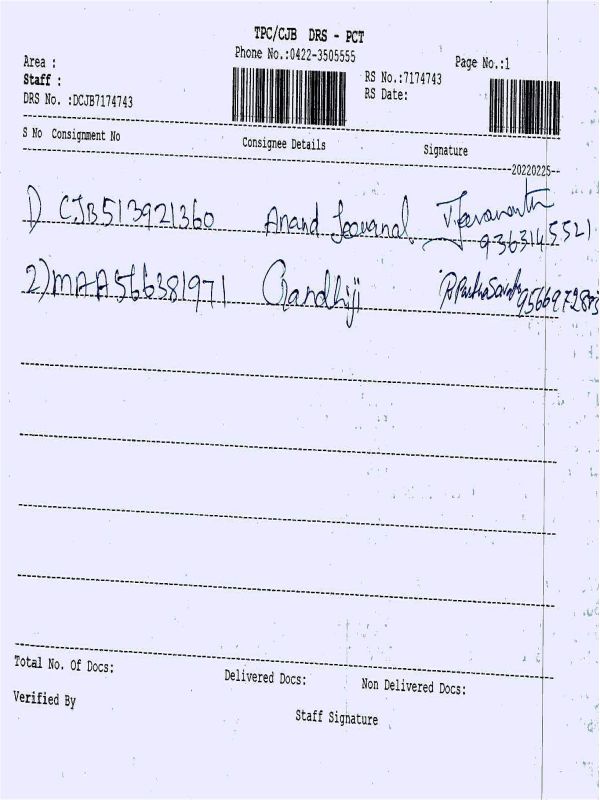 TPC/CJB DRS - PCT
Phone No.:0422-3505555
Page No.:1
Area :
Staff :
RS No.:7174743
DRS No. :DCJB7174743
RS Date:
S No Consignment No Consignee Details Signature
20220225
1) CJB513921360 Anand 9363145521
2) MAA566381971 Gandhiji
Total No. Of Docs: Delivered Docs: Non Delivered Docs:
Verified By
Staff Signature